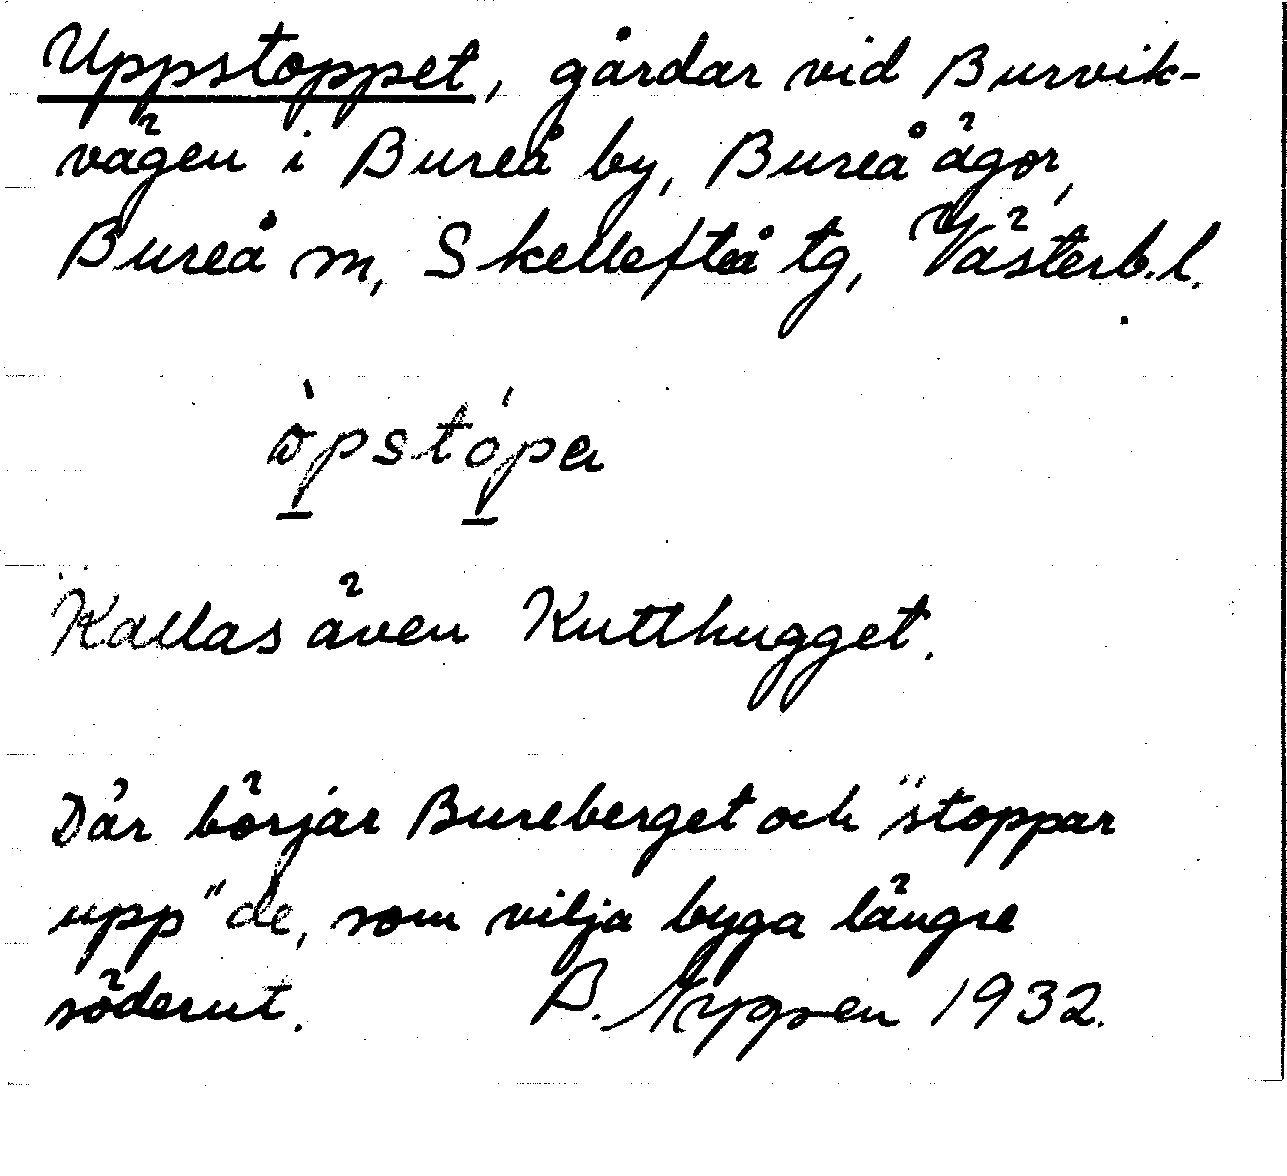 Uppstoppet, gårdar vid Burvik-
vägen i Bureå by, Bureå ägor,
Bureå m, Skellefteå tg, Västerb.l.
òpstópa
Kallas även Kutthugget.
Där börjar Bureberget och "stoppar
upp" de, som vilja byga längre
söderut. B. Nygren 1932.